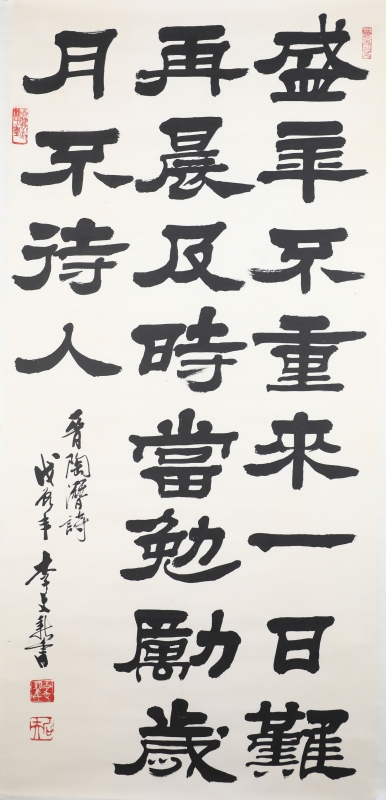 盛年不重來一日難
再晨及時當勉勵歲
月不待人
晉陶潛詩
戊辰年 李文新書